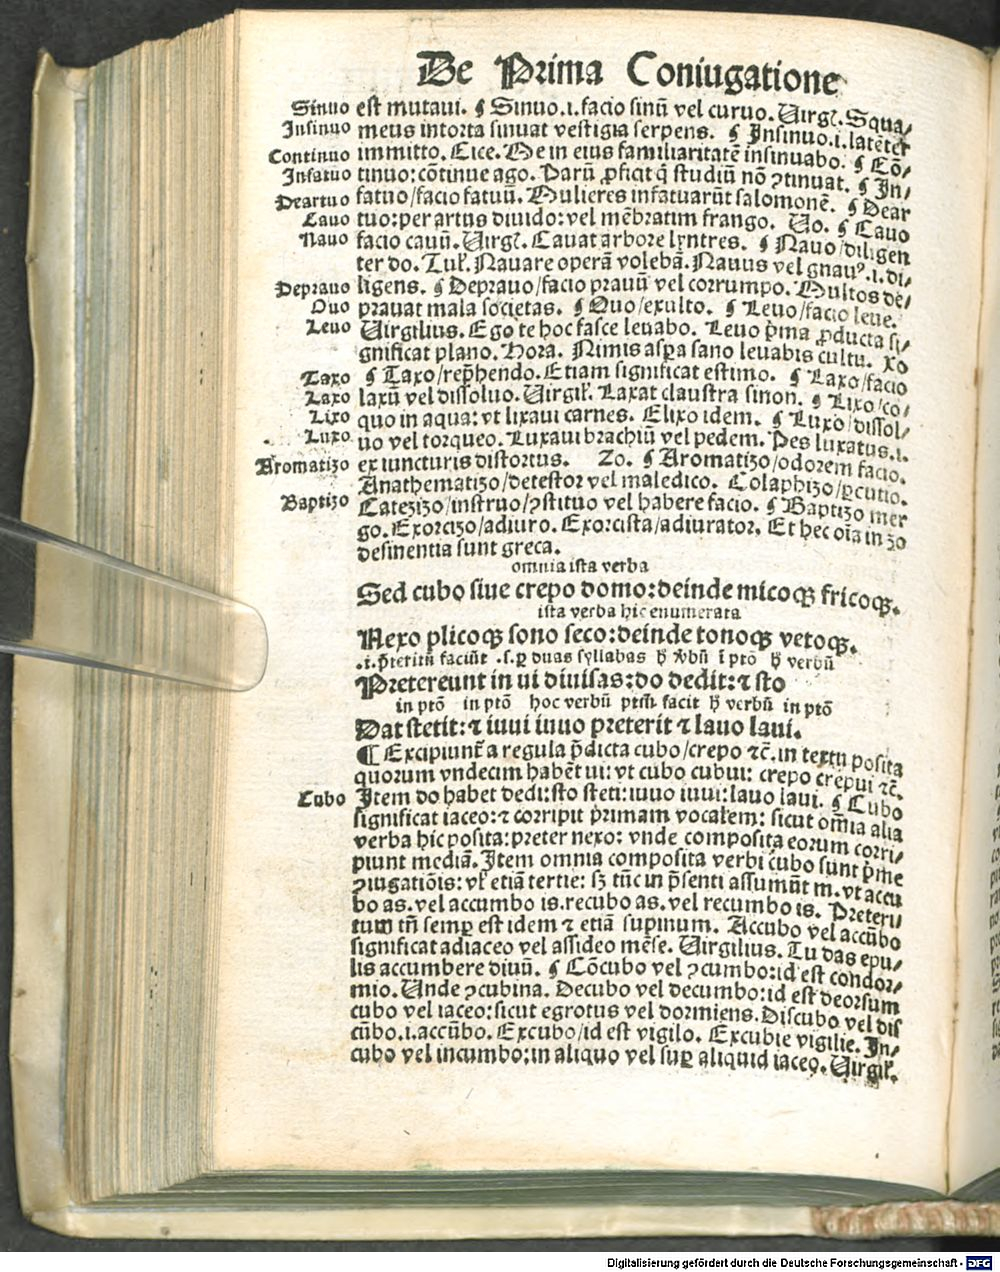 De Prima Coniugatione
Sinuo est mutaui. ¶ Sinuo .i. facio sinū vel curuo. Uirgꝉ. Squa/
Insinuo meus intorta sinuat vestigia serpens. ¶ Insinuo .i. latēter
Continuo immitto. Cice. Me in eius familiaritatē insinuabo. ¶ Cō/
Infatuo tinuo: cōtinue ago. Parū ꝓficit q̄ studiū nō ꝯtinuat. ¶ In/
Deartuo fatuo/facio fatuū. Mulieres infatuarūt salomonē. ¶ Dear
Cauo tuo: per artus diuido: vel mēbratim frango. Uo. ¶ Cauo
Nauo facio cauū. Uirgꝉ. Cauat arbore lyntres. ¶ Nauo/diligen
ter do. Tuꝉ. Nauare operā volebā. Nauus vel gnauꝰ .i. di/
Deprauo ligens. ¶ Deprauo/facio prauū vel corrumpo. Multos de/
Ouo prauat mala societas. ¶ Ouo/exulto. ¶ Leuo/facio leue.
Leuo Uirgilius. Ego te hoc fasce leuabo. Leuo p̄ma ꝓducta si/
gnificat plano. Hora. Nimis aspa sano leuabis cultu. Xo
Taxo ¶ Taxo/rep̄hendo. Etiam significat estimo. ¶ Laxo/facio
Laxo laxū vel dissoluo. Uirgiꝉ. Laxat claustra sinon. ¶ Lixo/co/
Lixo quo in aqua: vt lixaui carnes. Elixo idem. ¶ Luxo/dissol/
Luxo uo vel torqueo. Luxaui brachiū vel pedem. Pes luxatus .i.
Aromatizo ex iuncturis distortus. Zo. ¶ Aromatizo/odorem facio.
Anathematizo/detestor vel maledico. Colaphizo/ꝑcutio.
Baptizo Catezizo/instruo/ꝯstituo vel habere facio. ¶ Baptizo mer
go. Exorcizo/adiuro. Exorcista/adiurator. Et hec oīa in zo
desinentia sunt greca.
omnia ista verba
Sed cubo siue crepo domo: deinde micoqꝫ fricoqꝫ.
ista verba hic enumerata
Nexo plicoqꝫ sono seco: deinde tonoqꝫ vetoqꝫ.
.i. p̄teritū faciūt .s. ꝑ duas syllabas ꝑ vbū ī ptō ꝑ verbū
Pretereunt in ui diuisas: do dedit: ⁊ sto
in ptō in ptō hoc verbū facit verbū in ptō
Dat stetit: ⁊ iuui iuuo preterit ⁊ lauo laui.
¶ Excipiunt̄ a regula p̄dicta cubo/crepo ⁊c̄. in textu posita
quorum vndecim habēt ui: vt cubo cubui: crepo crepui ⁊c̄.
Cubo Item do habet dedi: sto steti: iuuo iuui: lauo laui. ¶ Cubo
significat iaceo: ⁊ corripit primam vocalem: sicut omīa alia
verba hic posita: preter nexo: vnde composita eorum corri/
piunt mediā. Item omnia composita verbi cubo sunt p̄me
ꝯiugatiōis: vꝉ etiā tertie: sꝫ tūc in p̄senti assumūt m. vt accu
bo as. vel accumbo is. recubo as. vel recumbo is. Preteri/
tum tn̄ semꝑ est idem ⁊ etiā supinum. Accubo vel accūbo
significat adiaceo vel assideo mēse. Uirgilius. Tu das epu/
lis accumbere diuū. ¶ Cōcubo vel ꝯcumbo: id est condor/
mio. Unde ꝯcubina. Decubo vel decumbo: id est deorsum
cubo vel iaceo: sicut egrotus vel dormiens. Discubo vel dis
cūbo .i. accūbo. Excubo/id est vigilo. Excubie vigilie. In/
cubo vel incumbo: in aliquo vel suꝑ aliquid iaceo. Uirgiꝉ.
Digitalisierung gefördert durch die Deutsche Forschungsgemeinschaft - DFG